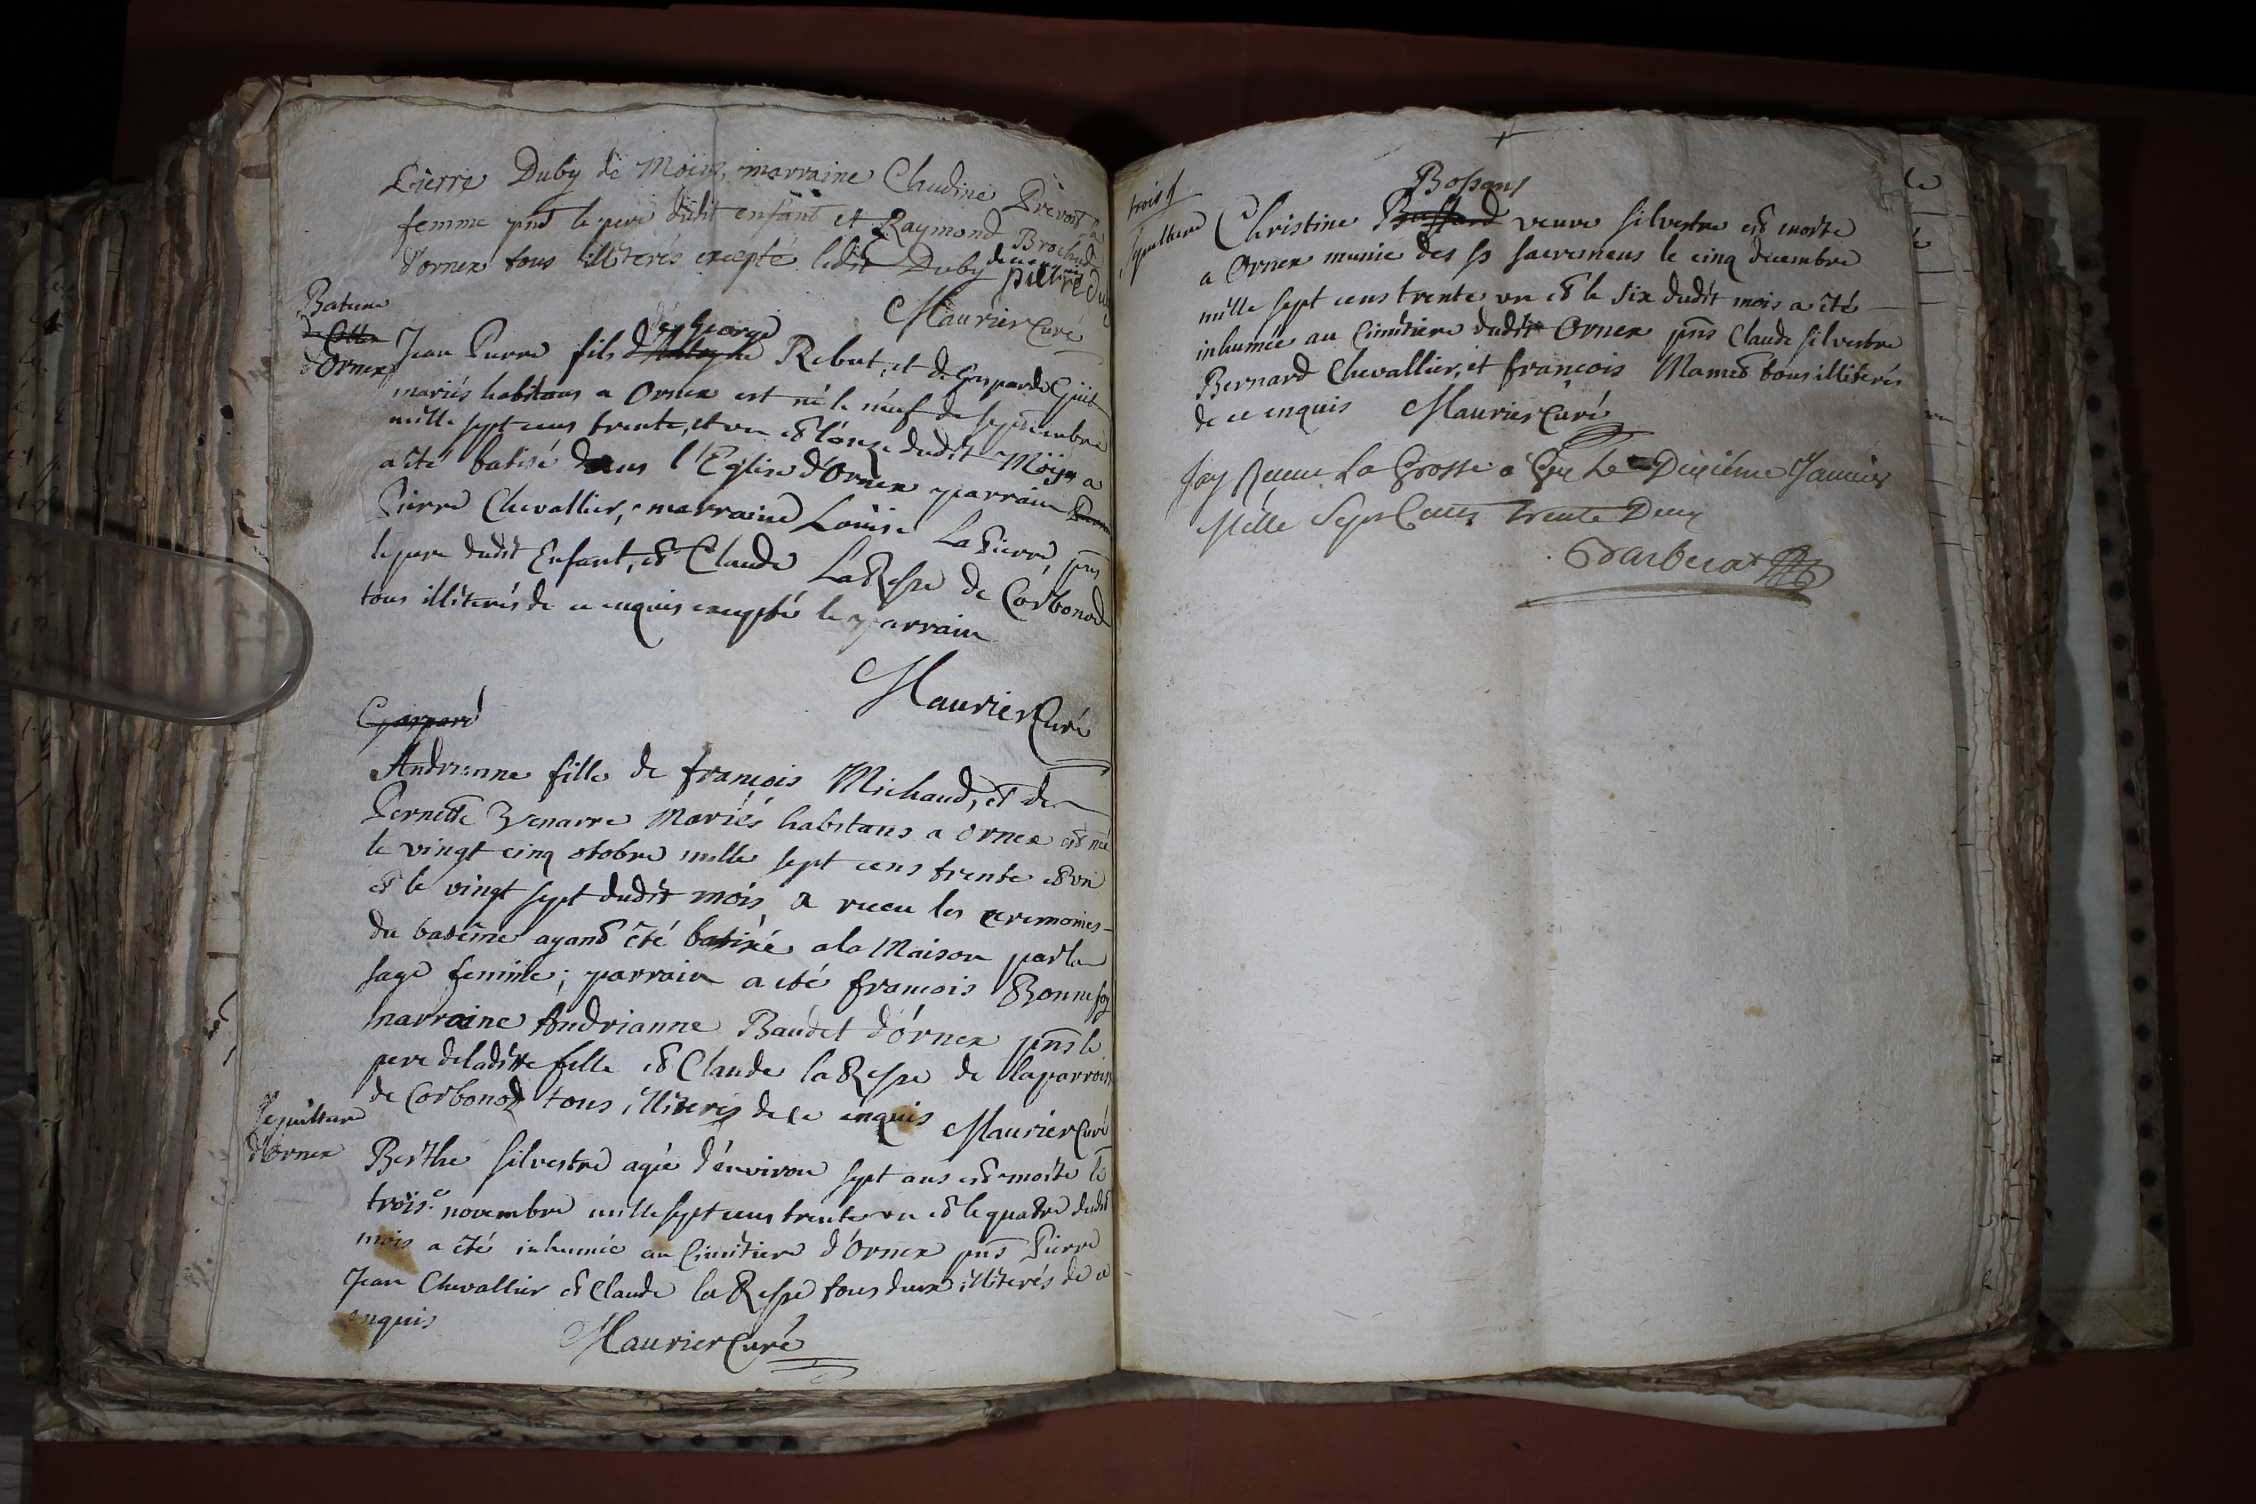 Pierre Duby de Moëns, marraine Claudine Prevost sa
femme pnt le pere dudit enfant et Raymond Brochu
d'ornex tous illiterés excepté ledit Duby de ce enquis
pierre Du
Maurier Curé
Bateme
d'Ornex
de George
Jean Pierre fils Rebut, et de Gasparde
mariés habitans a Ornex est né le neuf de septembre
mille sept cens trente, et un et l'onze dudit Mois a
a été batisé dans l'Eglise d'Ornex parrain
Pierre Chevallier, marraine Louise La Pierre, pns
le pere dudit Enfant, et Claude La Resse de Corbonod
tous illiterés de ce enquis excepté le parrain
Maurier Curé
Gaspard
Andrienne fille de françois Michaud, et de
Pernette mariés habitans a ornex est née
le vingt cinq otobre mille sept cens trente et un
et le vingt sept dudit mois a receu les ceremonies
du batême ayant été batisée a la Maison par la
sage femme; parrain a eté françois Bonnefoy
marraine Andrianne Baudet d'ornex pns le
pere de laditte fille et Claude la Resse de la parroisse
de Corbonod tous illiterés de ce enquis Maurier Curé
Sepulture
d'Ornex
Berthe silvestre agée d'environ sept ans est morte le
trois.e novembre mille sept cens trente un et le quatre dudit
mois a été inhumée au Cimitiere d'Ornex pns Pierre
Jean Chevallier et Claude la Resse tous deux illiterés de ce
enquis
Maurier Curé
trois
sepulture
Bossons
Christine veuve silvestre est morte
a Ornex munie des ss sacremens le cinq decembre
mille sept cens trente un et le six dudit mois a été
inhumée au Cimitiere dudit Ornex pns Claude silvestre
Bernard Chevallier, et françois Mamet tous illiterés
de ce enquis Maurier Curé
Jay Receu La Grosse a Gex Le Dixiéme Janvier
Mille Sept Cents Trente Deux
Barberat